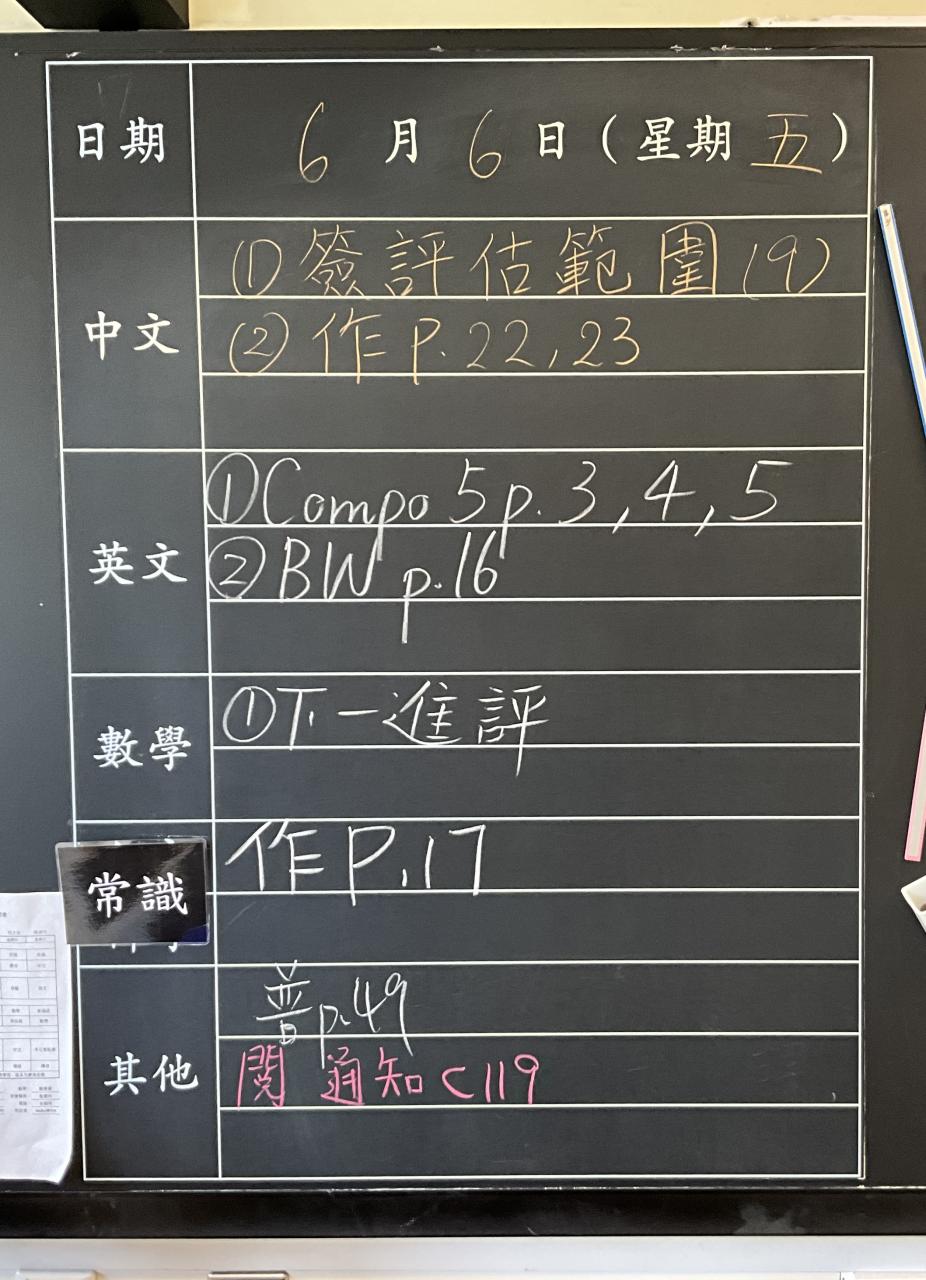 日期 6 月 6 日 ( 星期 五 )
中文
①簽評估範圍(9)
②作P.22,23
英文
①Compo 5 p.3,4,5
②BW p.16
數學
①下一進評
常識
作P.17
其他
普p.49
閱 通知C119